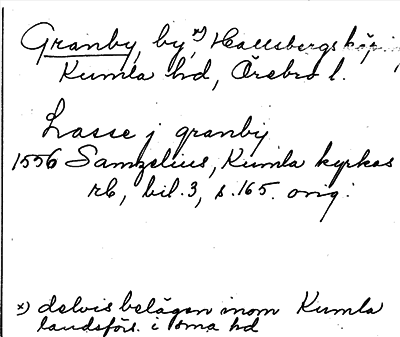 Granby, by, x) Hallsbergs köp.
Kumla hd, Örebro l.
Lasse j granby
1556 Samzelius, Kumla kyrkas
rb, bil. 3, s. 165. orig.
x) delvis belägen inom Kumla
landsförs. i sma hd